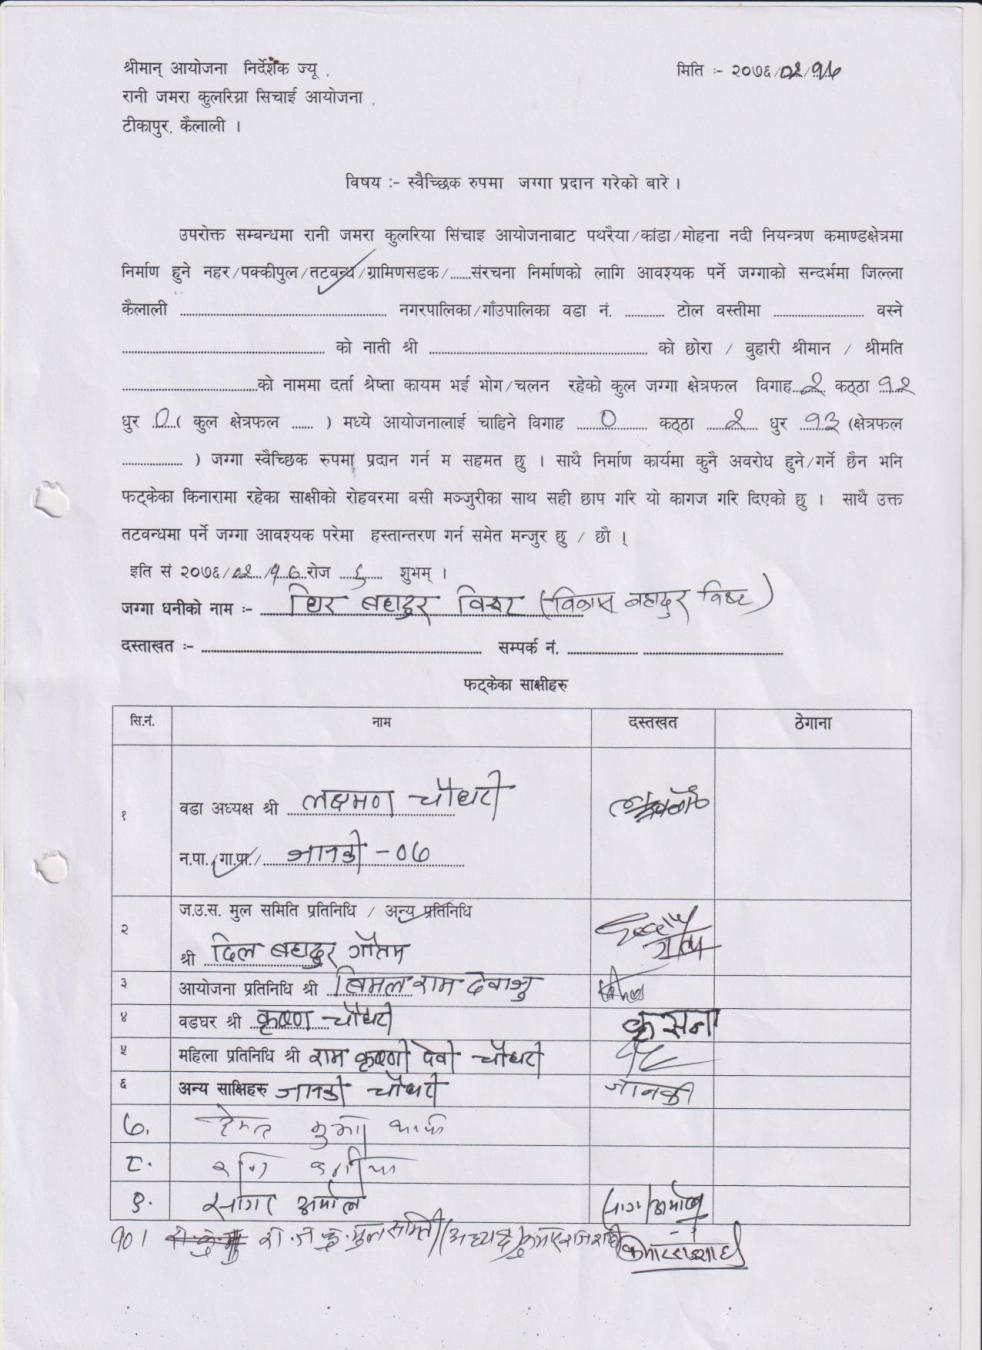 श्रीमान् आयोजना निर्देशक ज्यू ,
मिति :- २०७६/०२/१६
रानी जमरा कुलरिया सिचाई आयोजना ,
टीकापुर, कैलाली ।
विषय :- स्वैच्छिक रुपमा जग्गा प्रदान गरेको बारे ।
उपरोक्त सम्बन्धमा रानी जमरा कुलरिया सिंचाइ आयोजनाबाट पथरैया/कांडा/मोहना नदी नियन्त्रण कमाण्डक्षेत्रमा
निर्माण हुने नहर/पक्कीपुल/तटबन्ध/ग्रामिणसडक/......संरचना निर्माणको लागि आवश्यक पर्ने जग्गाको सन्दर्भमा जिल्ला
कैलाली .......... नगरपालिका/गाँउपालिका वडा नं. .......... टोल वस्तीमा .......... वस्ने
.......... को नाती श्री .......... को छोरा / बुहारी श्रीमान / श्रीमति
..........को नाममा दर्ता श्रेष्ता कायम भई भोग/चलन रहेको कुल जग्गा क्षेत्रफल विगाह..२ कठ्ठा १२
धुर ..०..( कुल क्षेत्रफल ...... ) मध्ये आयोजनालाई चाहिने विगाह ....०.... कठ्ठा ....२.... धुर ..१३.. (क्षेत्रफल
.......... ) जग्गा स्वैच्छिक रुपमा प्रदान गर्न म सहमत छु । साथै निर्माण कार्यमा कुनै अवरोध हुने/गर्ने छैन भनि
फट्केका किनारामा रहेका साक्षीको रोहवरमा वसी मञ्जुरीका साथ सही छाप गरि यो कागज गरि दिएको छु । साथै उक्त
तटवन्धमा पर्ने जग्गा आवश्यक परेमा हस्तान्तरण गर्न समेत मन्जुर छु / छौ ।
इति सं २०७६/०२/१७ रोज ....६.... शुभम् ।
जग्गा धनीको नाम :- थिर बहादुर विष्ट (विकास बहादुर विष्ट)
दस्ताखत :- .......... सम्पर्क नं. .......... ..........
फट्केका साक्षीहरु
सि.नं. नाम दस्तखत ठेगाना
१ वडा अध्यक्ष श्री लक्ष्मण चौधरी
न.पा./गा.पा./ जानकी -०७
२ ज.उ.स. मुल समिति प्रतिनिधि / अन्य प्रतिनिधि
श्री दिल बहादुर गौतम
३ आयोजना प्रतिनिधि श्री विमल राम देवाजु
४ वडघर श्री कृष्ण चौधरी कृसना
५ महिला प्रतिनिधि श्री राम कृष्णी देवी चौधरी
६ अन्य साक्षिहरु जानकी चौधरी जानकी
७.
८.
९. सागर अमोल
१०।